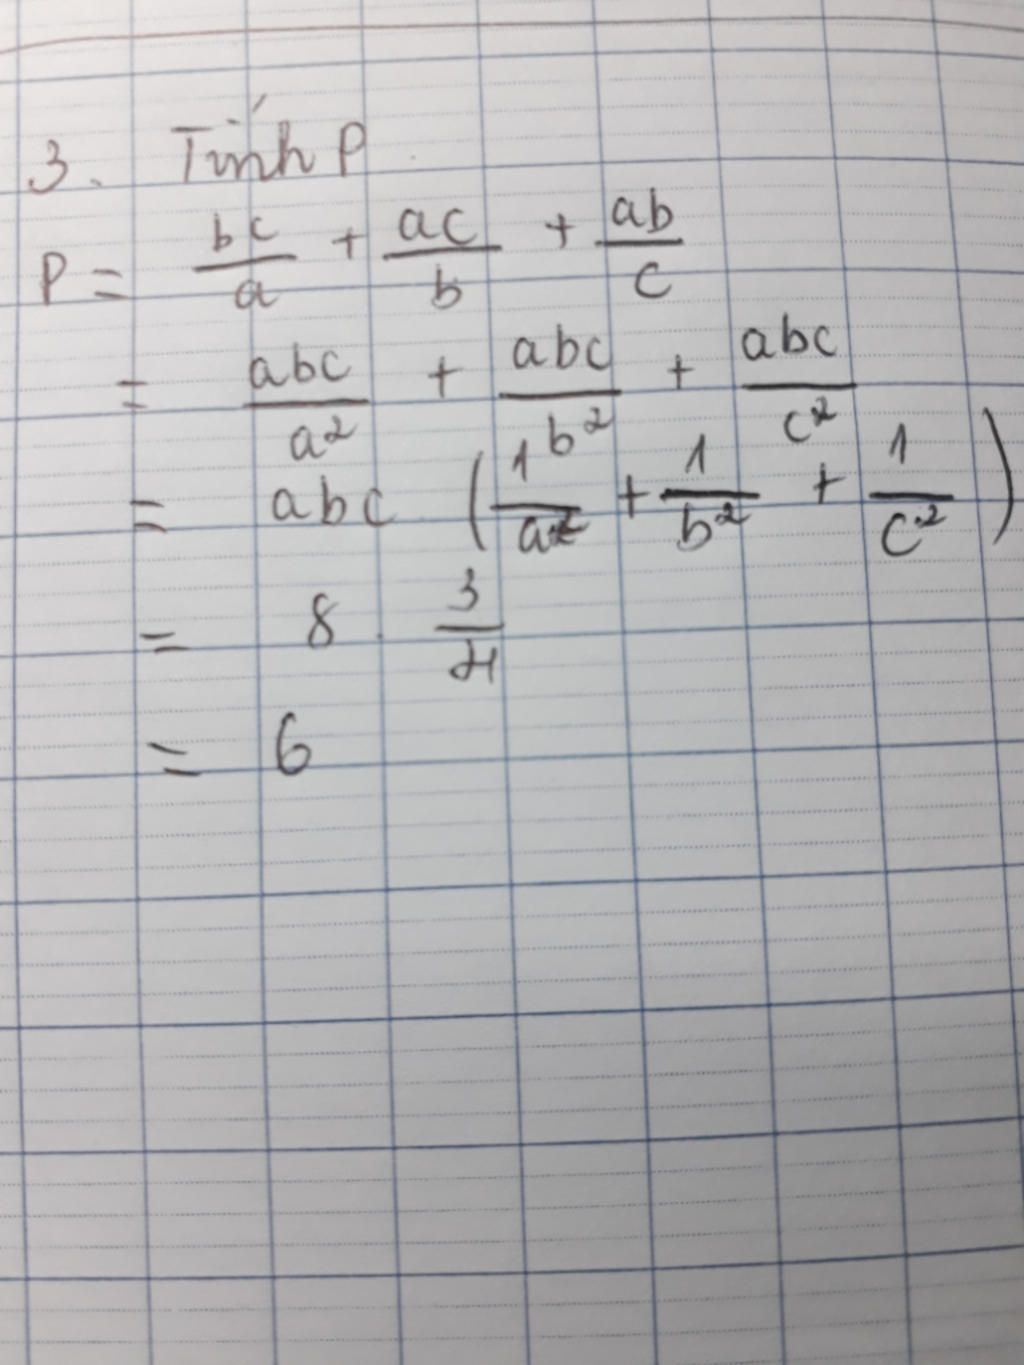 3. Tính P
P = bc/a + ac/b + ab/c
= abc/a² + abc/b² + abc/c²
= abc (1/a² + 1/b² + 1/c²)
= 8 . 3/4
= 6